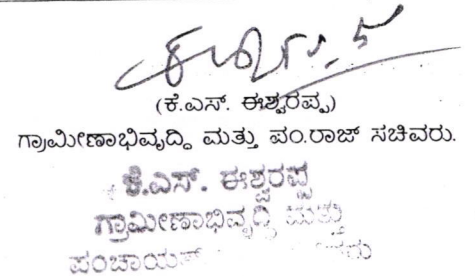 (ಕೆ.ಎಸ್. ಈಶ್ವರಪ್ಪ)
ಗ್ರಾಮೀಣಾಭಿವೃದ್ಧಿ ಮತ್ತು ಪಂ.ರಾಜ್ ಸಚಿವರು.
ಕೆ.ಎಸ್. ಈಶ್ವರಪ್ಪ
ಗ್ರಾಮೀಣಾಭಿವೃದ್ಧಿ ಮತ್ತು